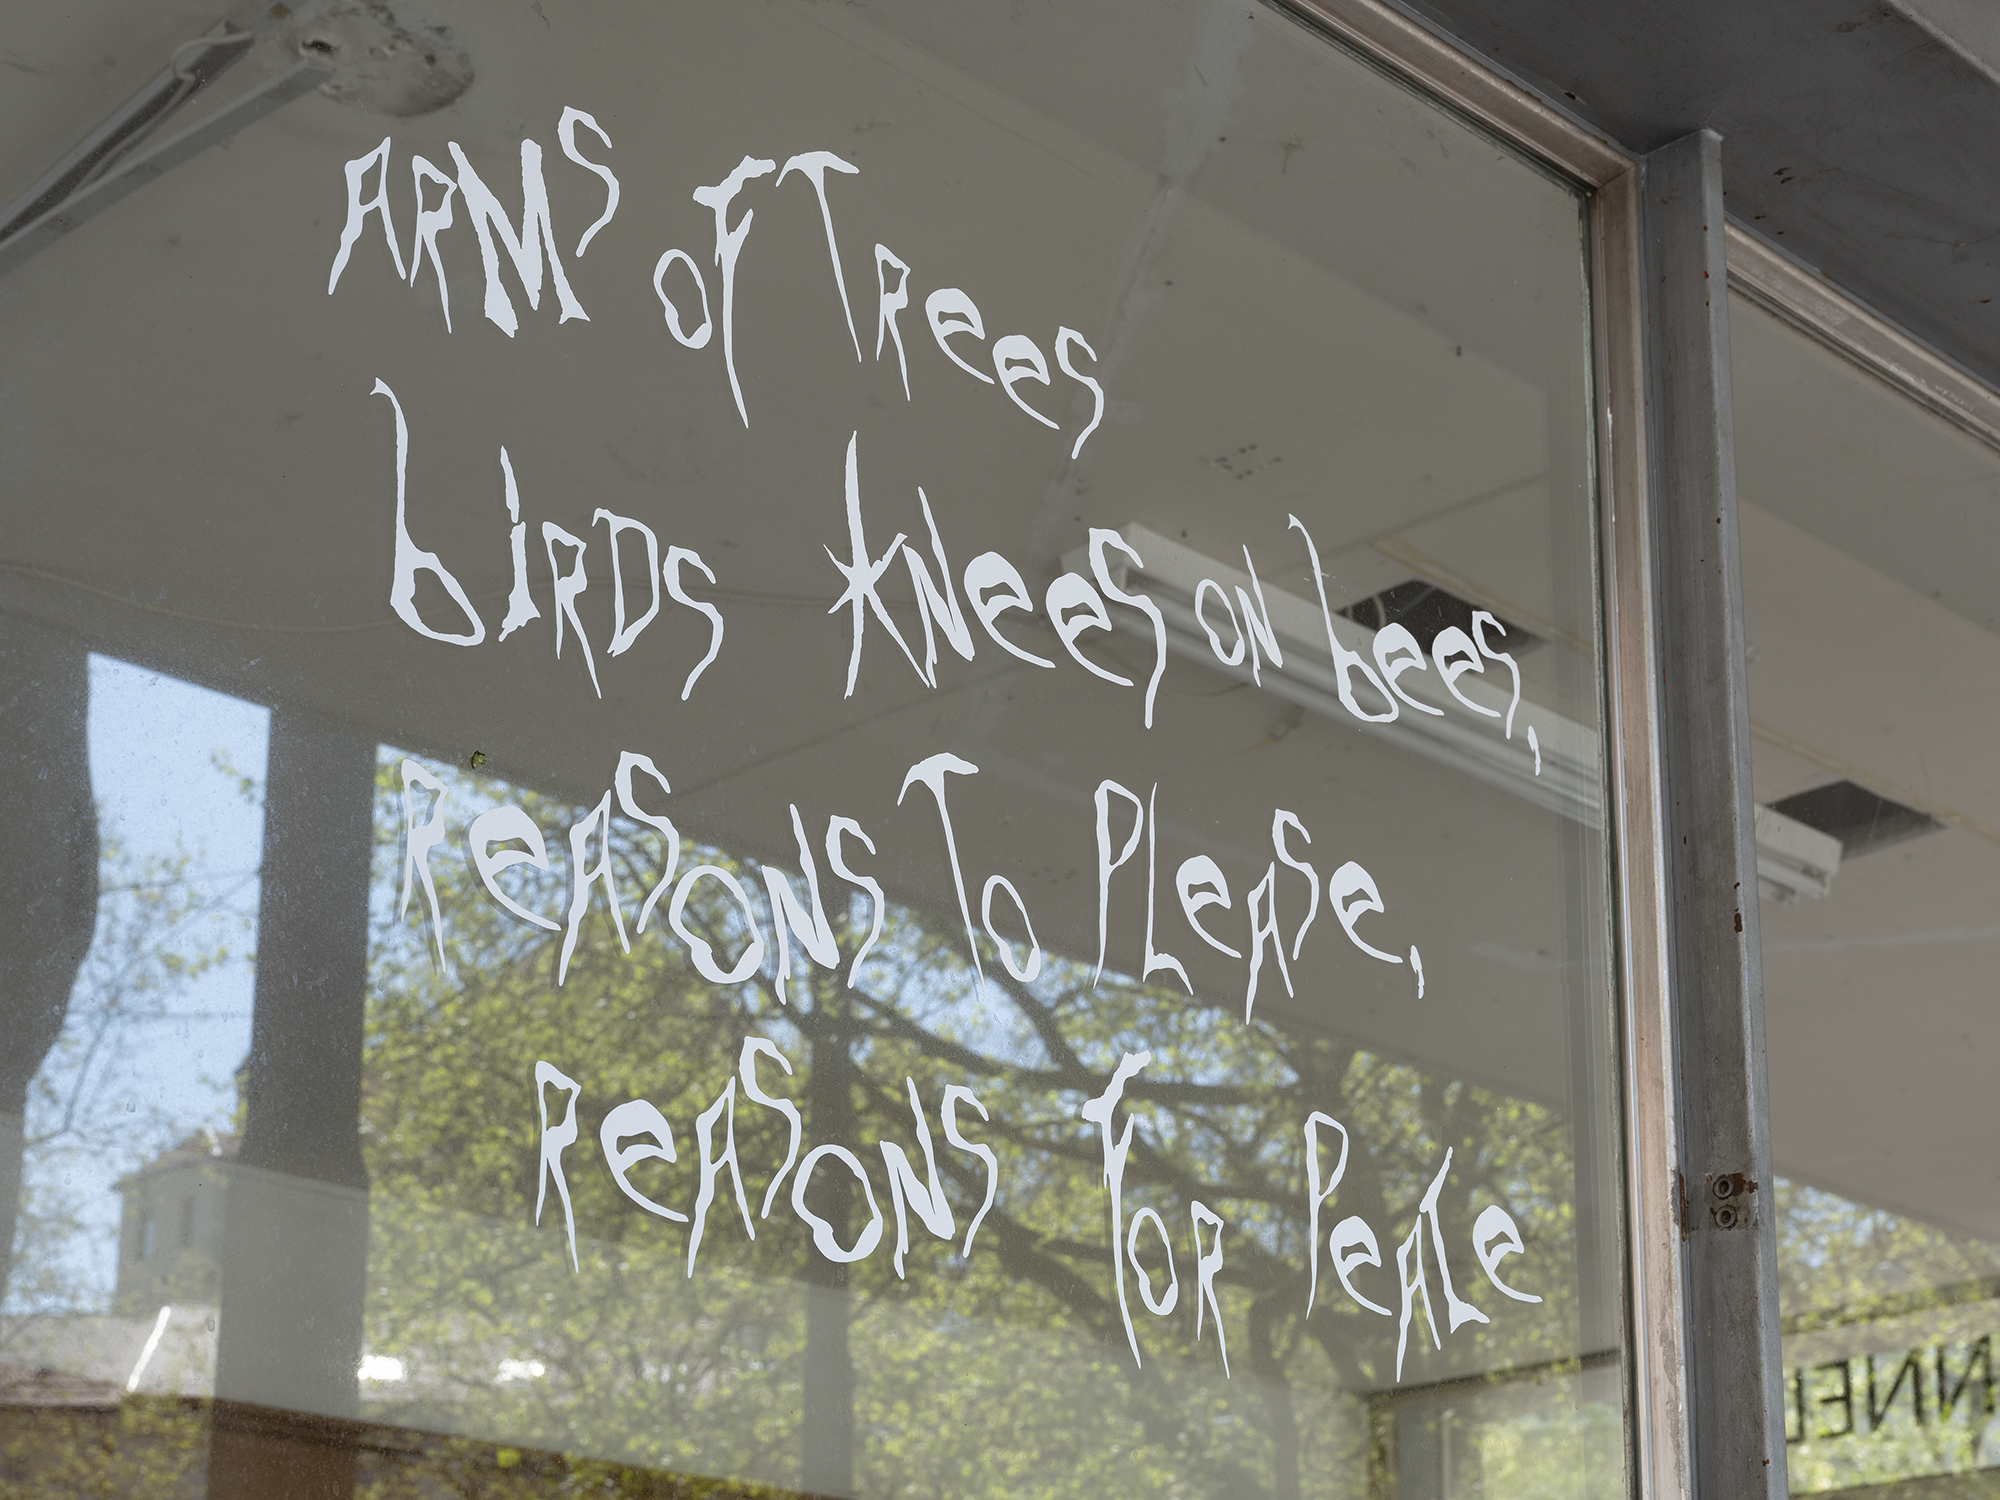 ARMS OF TREES
bIRDS KNees ON bees,
ReASONS TO PLeASe,
ReASONS FOR PeALe
NNEL